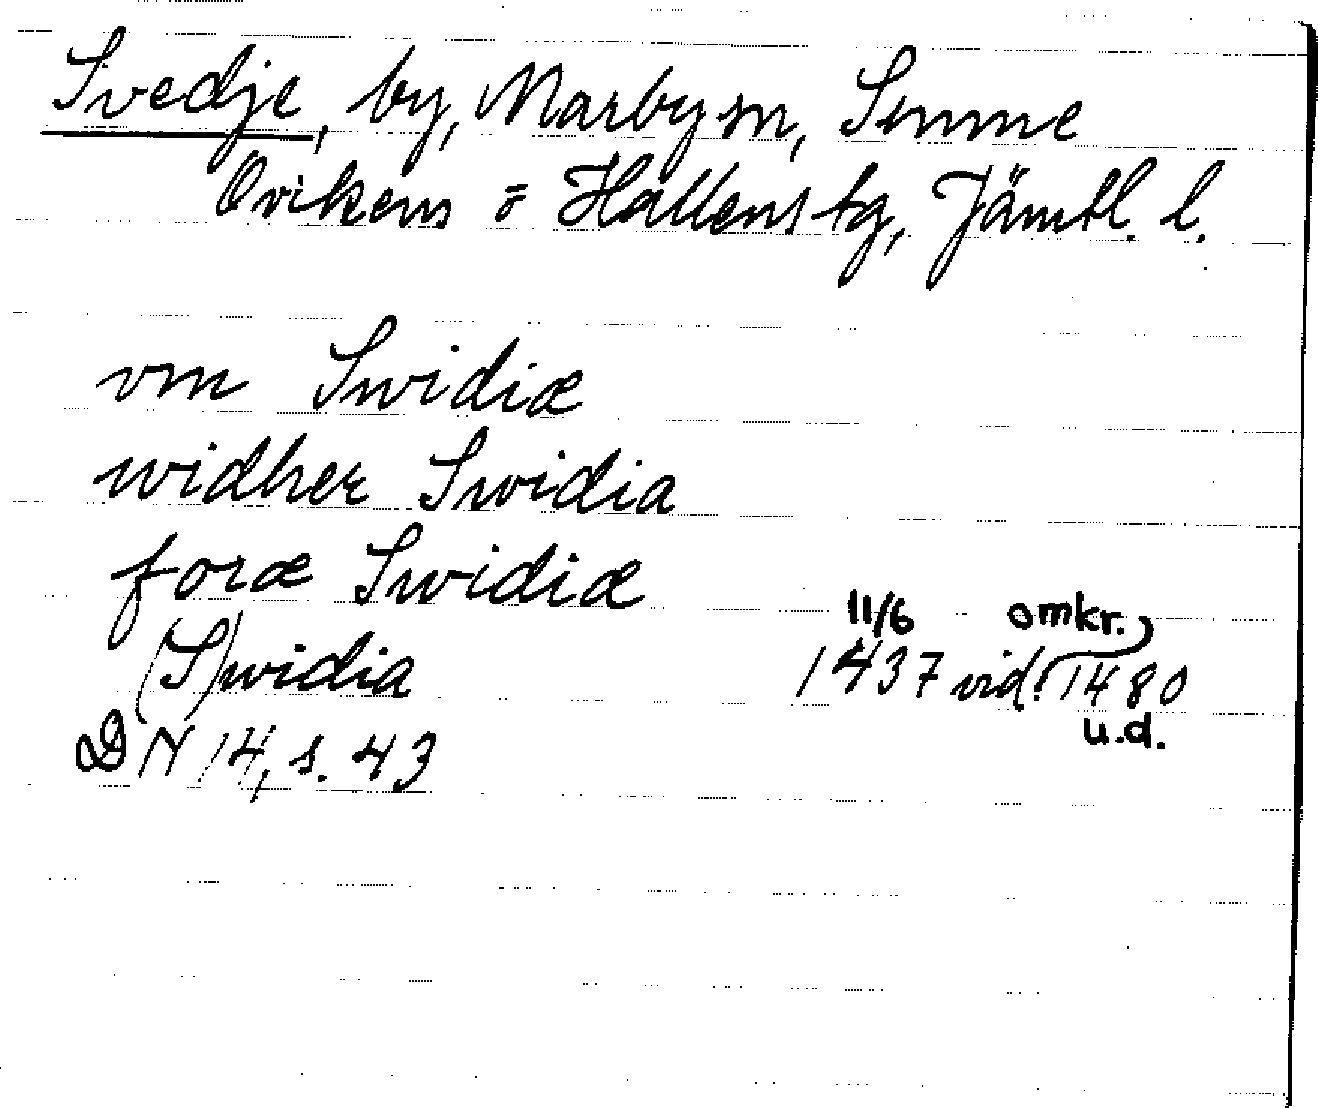 Svedje, by, Marby sn, Sunne
Ovikens o Hallens tg, Jämtl. l.
vm Swidiæ
widher Swidia
foræ Swidiæ
11/6 omkr.
(S)widia 1437 vid. 1480
u.d.
DN 14, s. 43